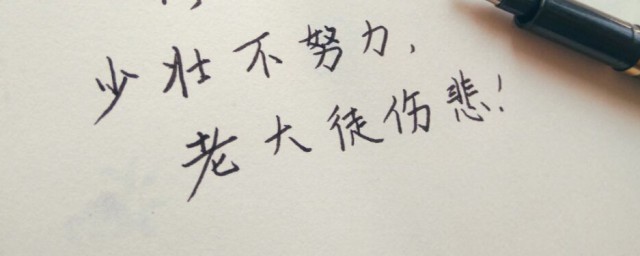 少壮不努力，
老大徒伤悲！